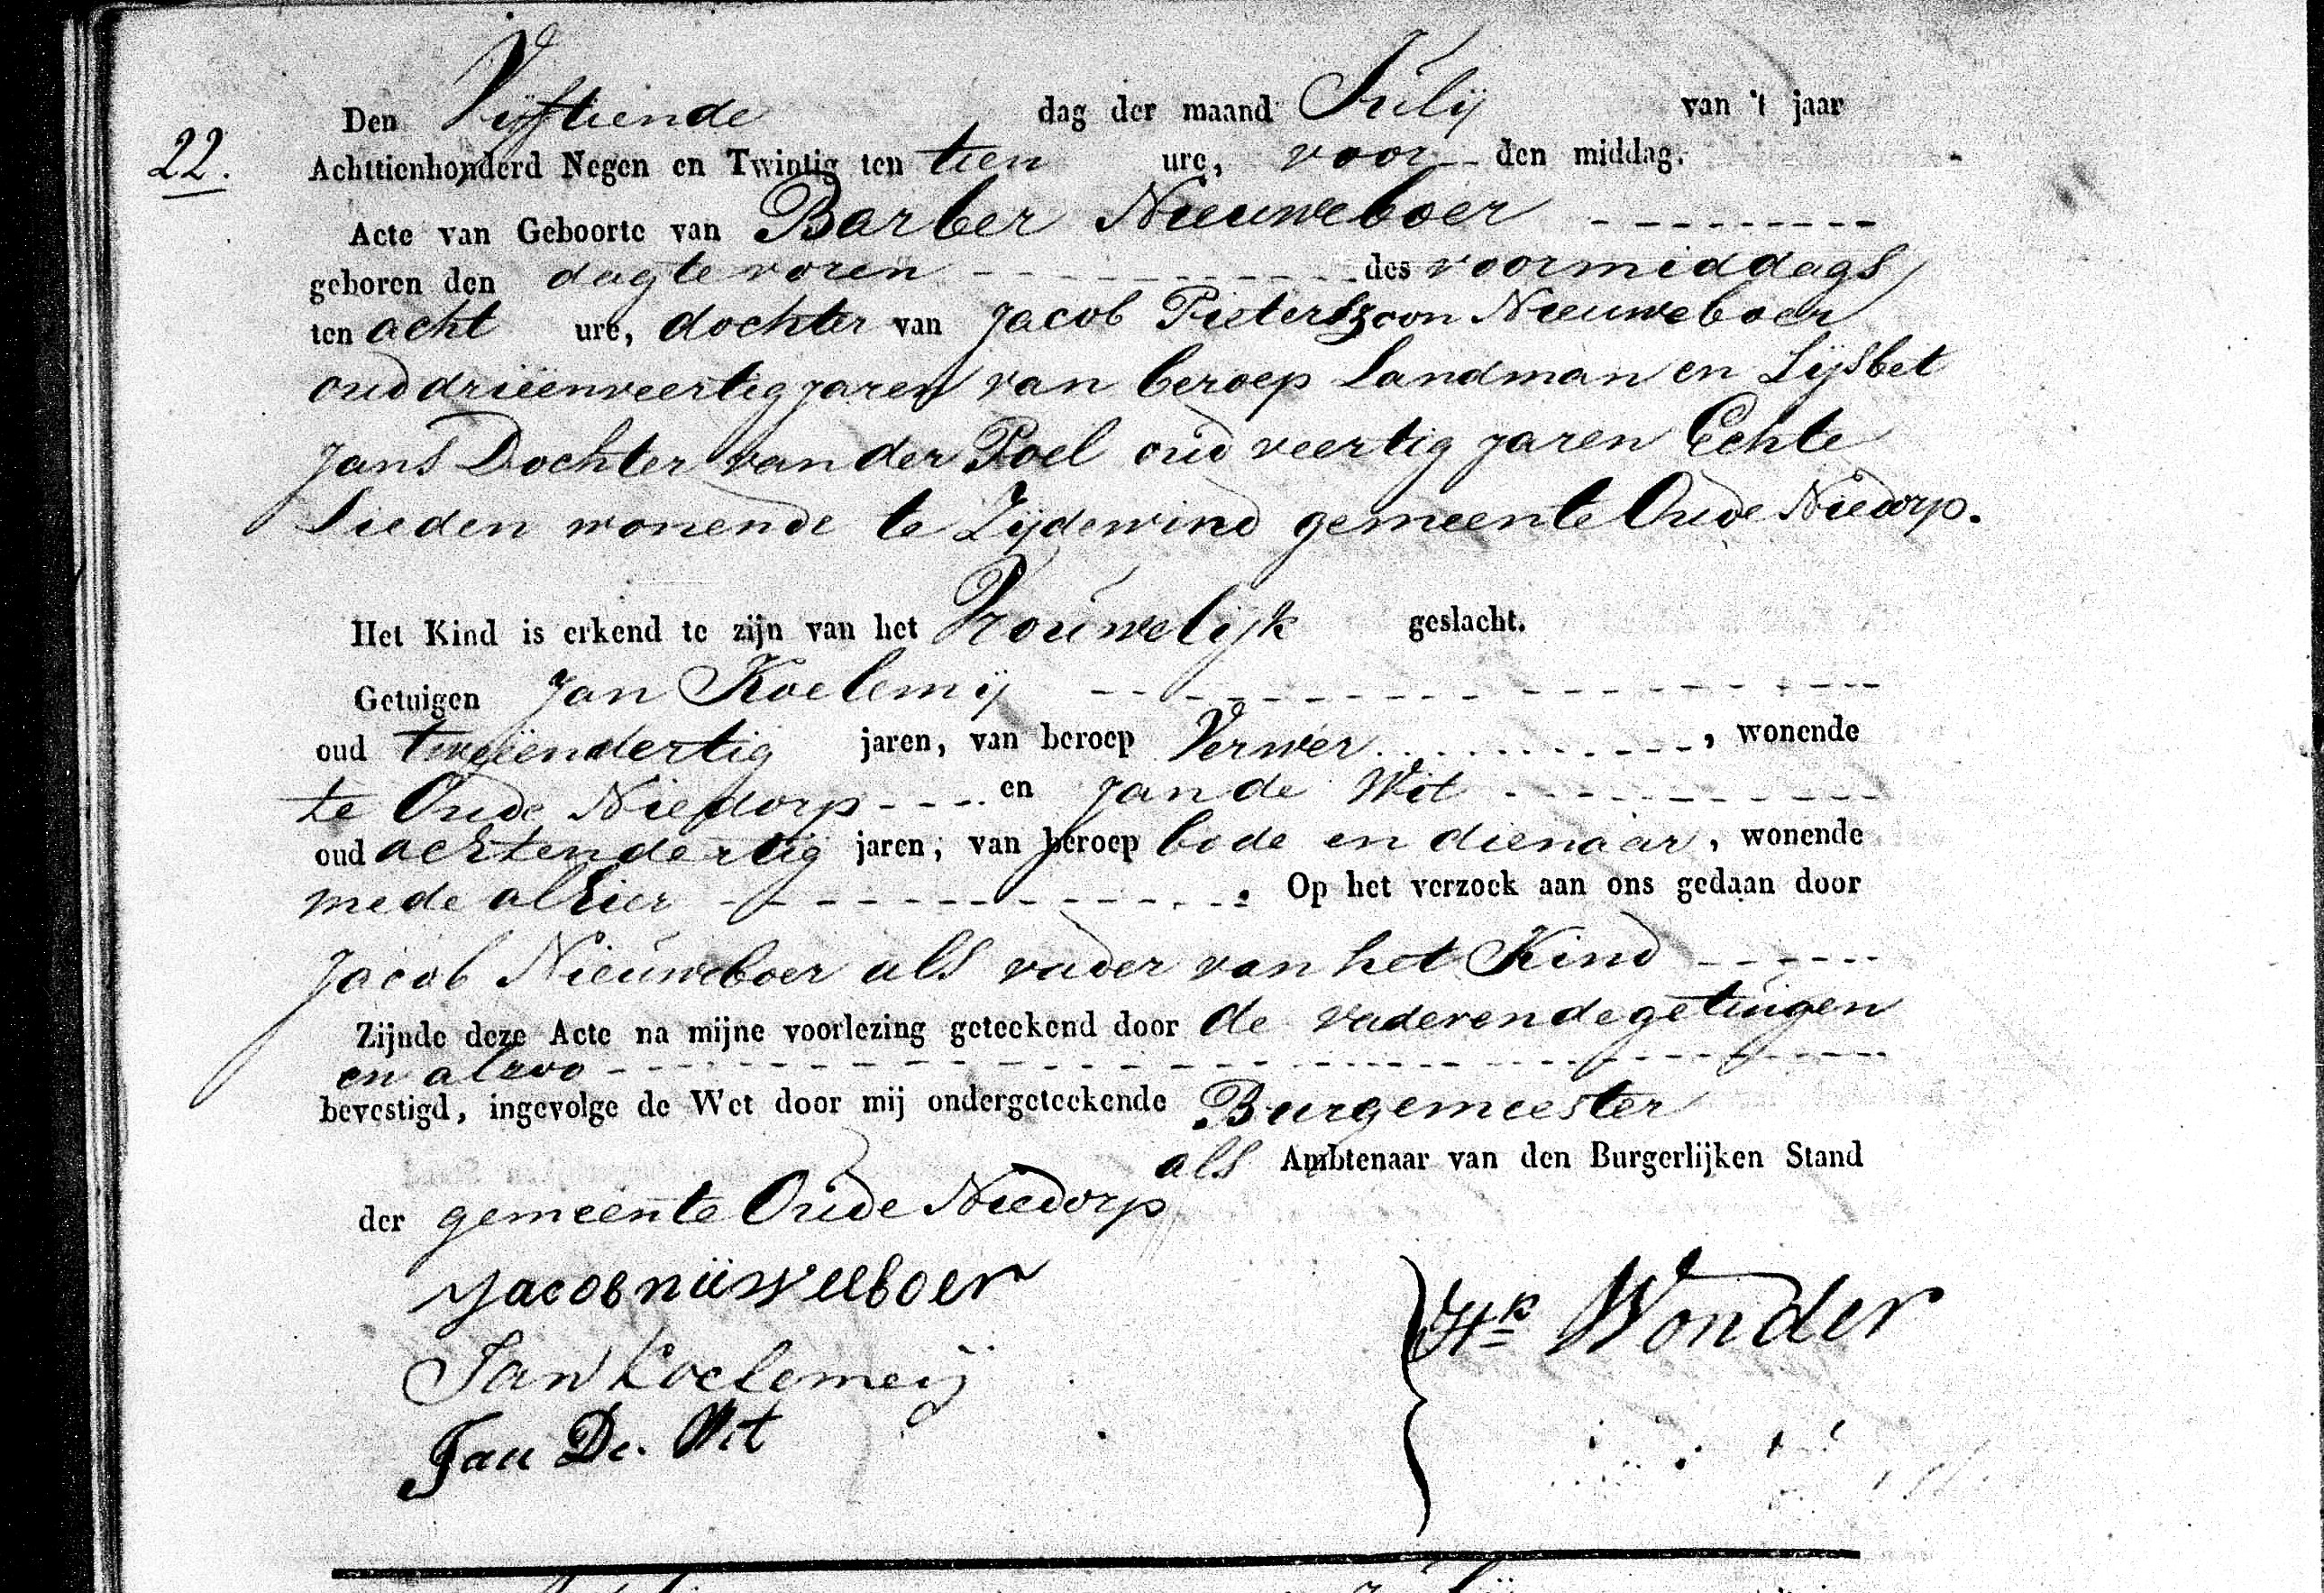 Den Vijftiende dag der maand Julij van 't jaar
22. Achttienhonderd Negen en Twintig ten tien ure, voor den middag.
Acte van Geboorte van Barber Nieuweboer
geboren den dag te voren des voormiddags
ten acht ure, dochter van Jacob Pieterszoon Nieuweboer
oud drieënveertig jaren van beroep Landman en Lijsbet
Jans Dochter van der Poel oud veertig jaren Echte
Lieden wonende te Zijdewind gemeente Oude Niedorp.
Het Kind is erkend te zijn van het Vrouwelijk geslacht.
Getuigen Jan Koelemij
oud tweeëndertig jaren, van beroep Verwer, wonende
te Oude Niedorp en Jan de Wit
oud achtendertig jaren, van beroep bode en dienaar, wonende
mede alhier. Op het verzoek aan ons gedaan door
Jacob Nieuweboer als vader van het Kind
Zijnde deze Acte na mijne voorlezing geteekend door de vader en de getuigen
en alzoo
bevestigd, ingevolge de Wet door mij ondergeteekende Burgemeester
als Ambtenaar van den Burgerlijken Stand
der gemeente Oude Niedorp
Jacob nieuweboer
Hk Wonder
Jan Koelemeij
Jan De. Wit